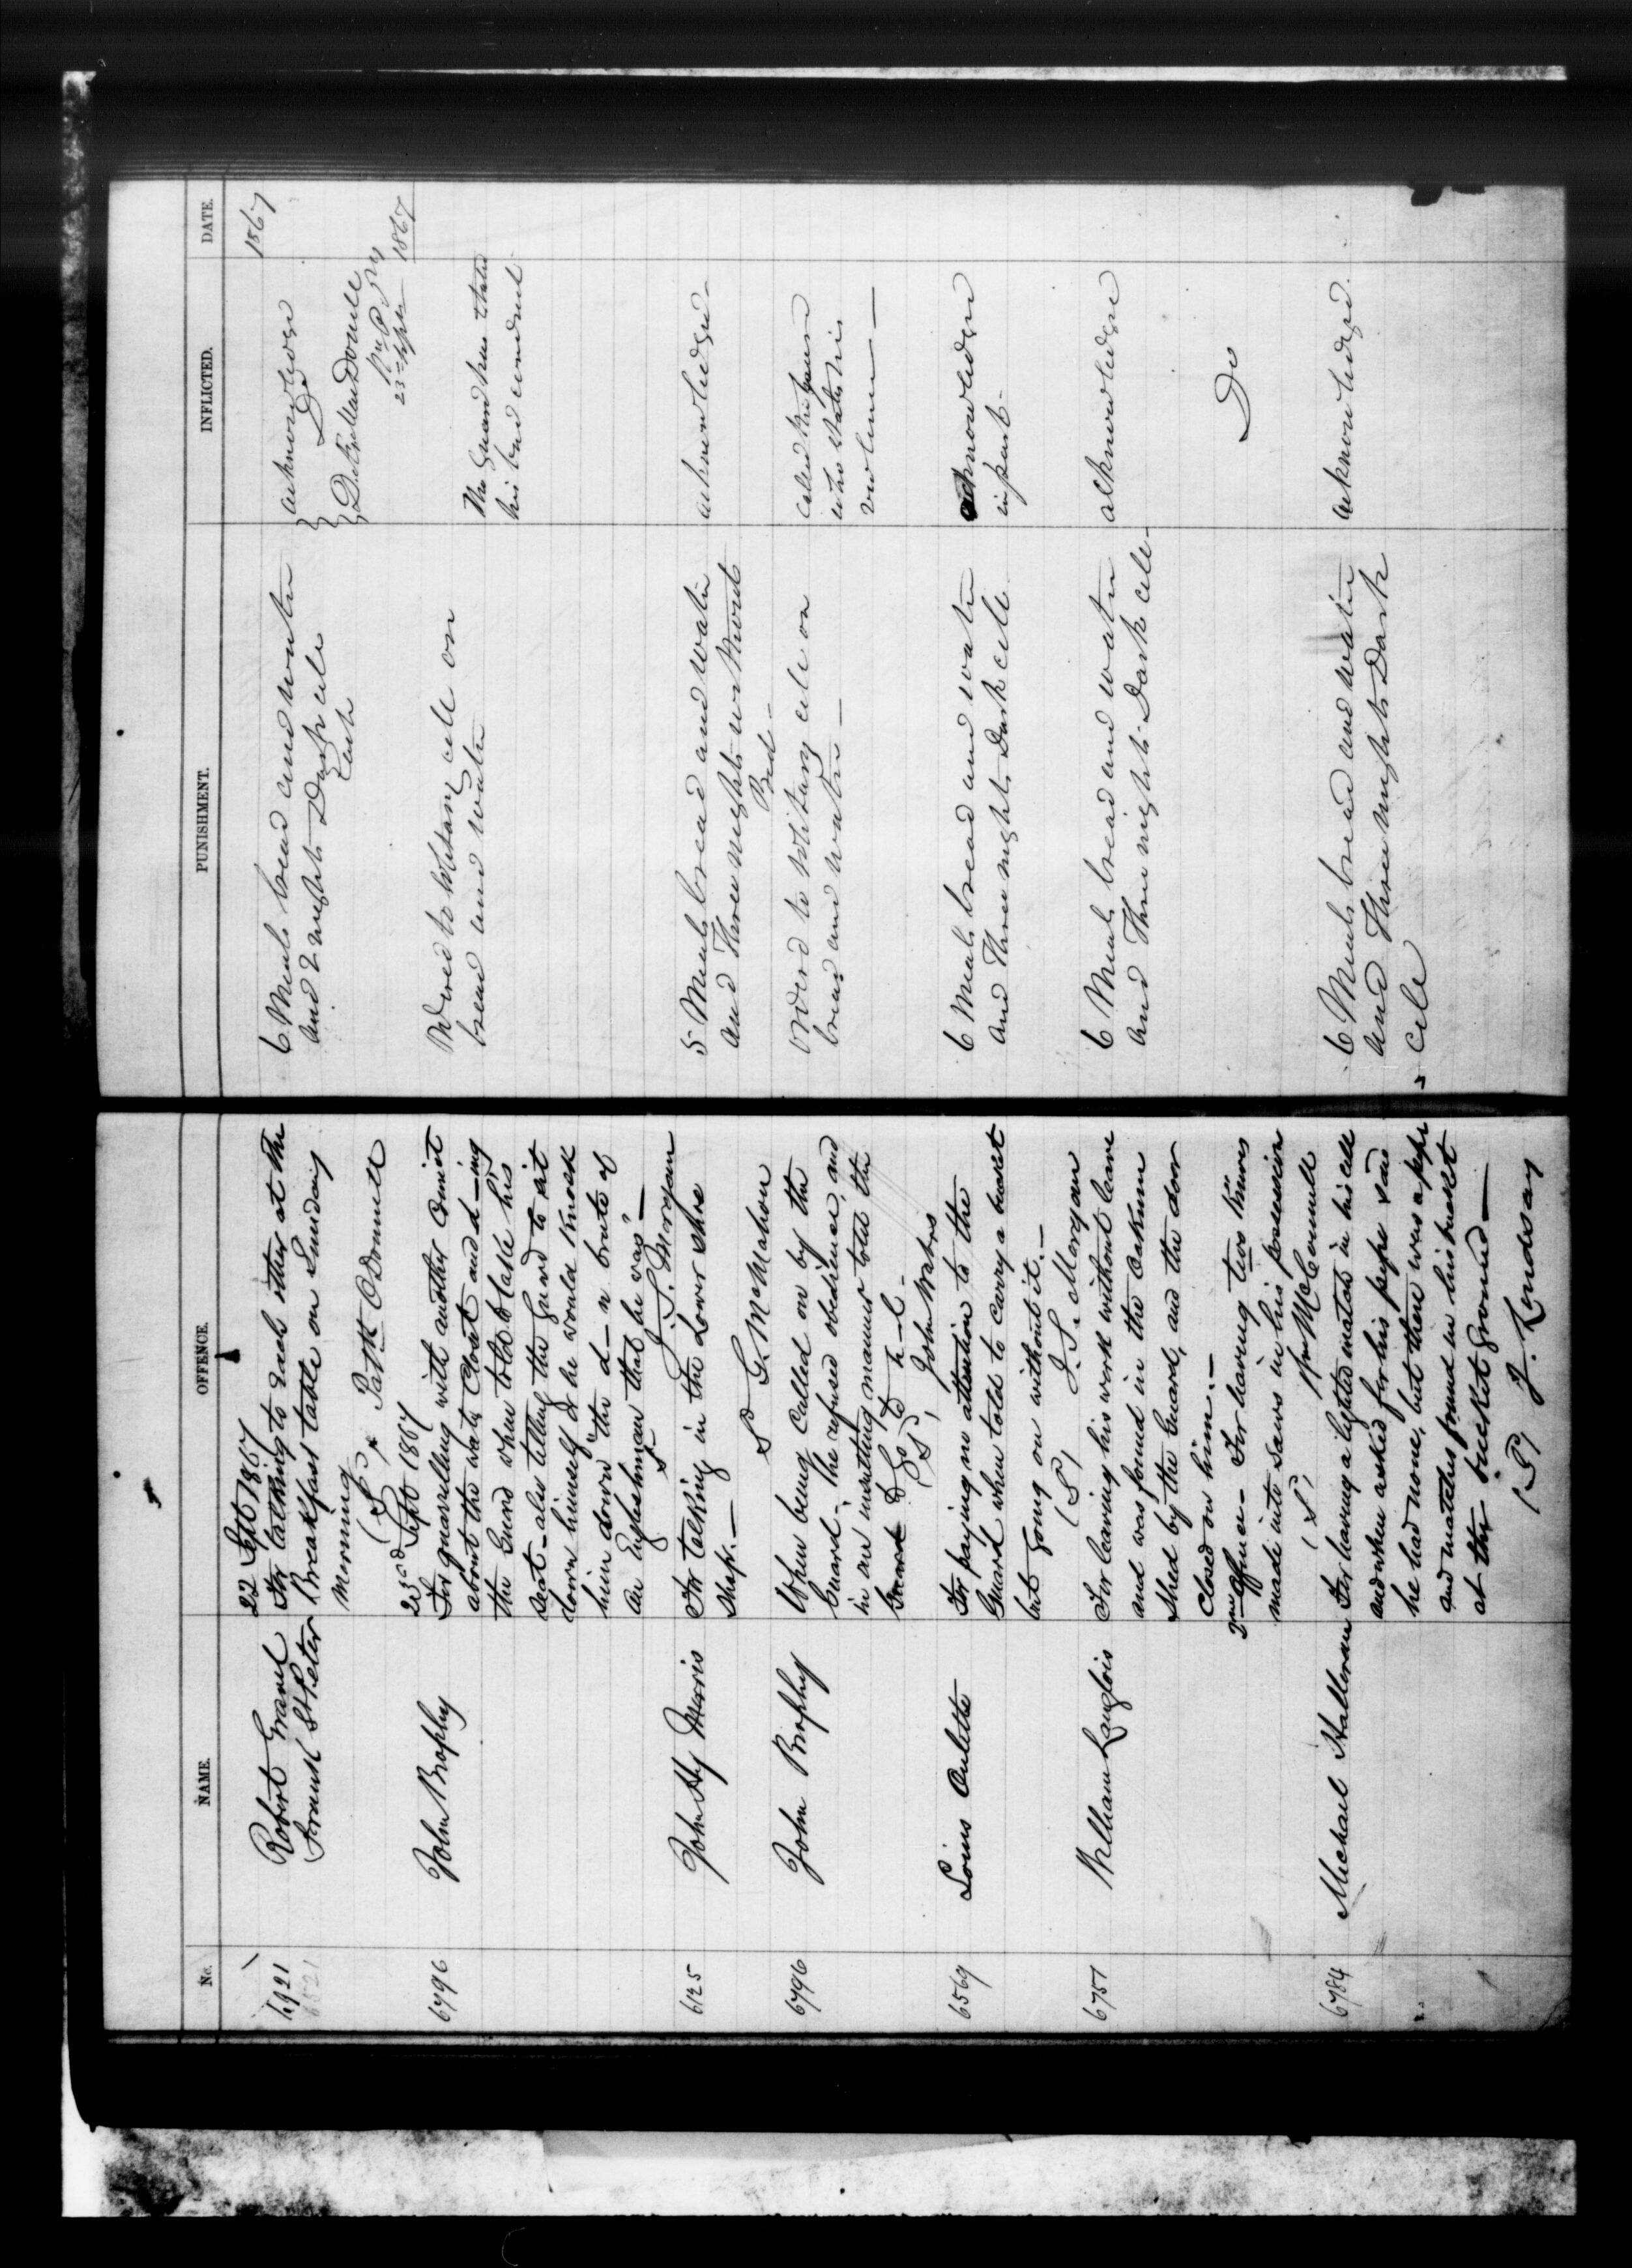 No. NAME. OFFENCE.
22 Sept 1867
Robert Gravel For talking to each other at the
St Peter Breakfast table on Sunday
Morning
(S) Patk ODonnell
23rd Sept 1867
6796 John Brophy For quarrelling with another Convict
about the waste Closet and d—ing
the Guard when told to take his
seat – also telling the Guard to sit
down himself or he would knock
him down "the d—n brute of
an Englishman that he was" —
S J. S. Morgan
6125 John Hy Morris For talking in the Lower Shoe
Shop. —
S G. McMahon
6796 John Brophy When being called on by the
Guard – He refused obedience, and
in an insulting manner told the
Guard to go to h–l –
(S) John Waters
6569 Louis Oulette For paying no attention to the
Guard when told to carry a basket
but going on without it. —
(S) J. S. Morgan
6751 William Langlois For leaving his work without leave
and was found in the Oakum
Shed by the Guard, and the door
closed on him. —
2nd Offence – For having two knives
made into saws in his possession
(S) Wm McConnell
6784 Michael Halleran For having a lighted match in his cell
and when asked for his pipe said
he had none, but there was a pipe
and matches found in his bucket
at the bucket ground —
(S) J. Lindsay
PUNISHMENT. INFLICTED. DATE.
1867
6 Meals bread and water acknowledge
and 2 nights Dark cell Do
Each
23rd Sept 1867
Ordered to solitary cell on The Guard here states
bread and water his bad conduct
5 Meals bread and water acknowledged –
and Three nights without
Bed –
Ordered to solitary cell on
bread and water – who states his
violence —
6 Meals bread and water acknowledged
and Three nights Dark cell in part –
6 Meals bread and water acknowledged
and Three nights Dark cell –
Do
6 Meals bread and water acknowledged.
and Three nights Dark
cell